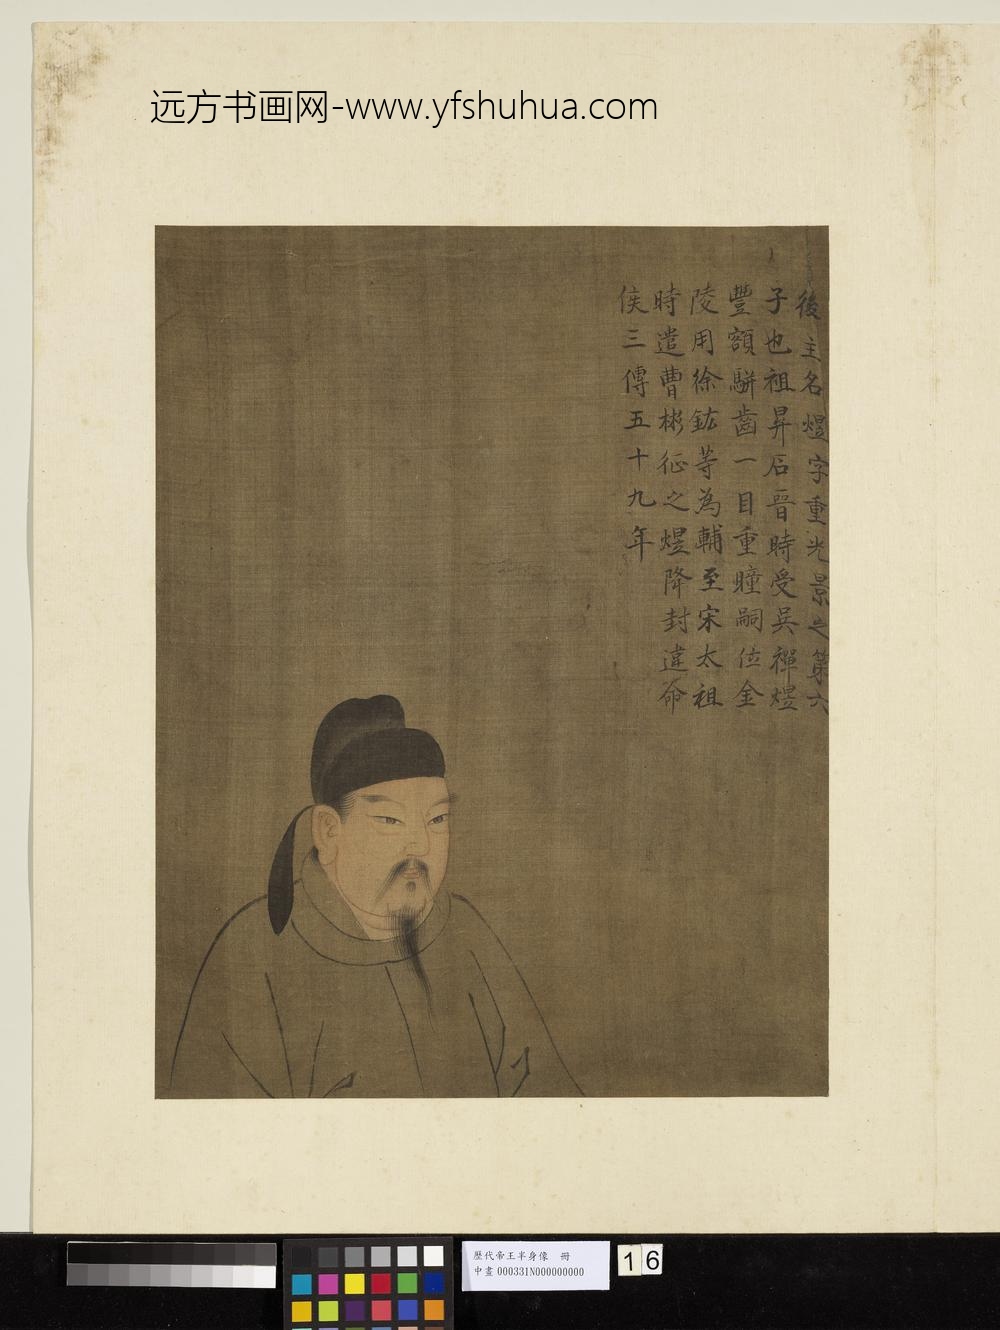 远方书画网-www.yfshuhua.com
後主名煜字重光景之第六
子也祖昇石晉時受吳禪煜
豐額駢齒一目重瞳嗣位金
陵用徐鉉等為輔至宋太祖
時遣曹彬征之煜降封違命
侯三傳五十九年
歷代帝王半身像 冊
中畫000331N000000000
16